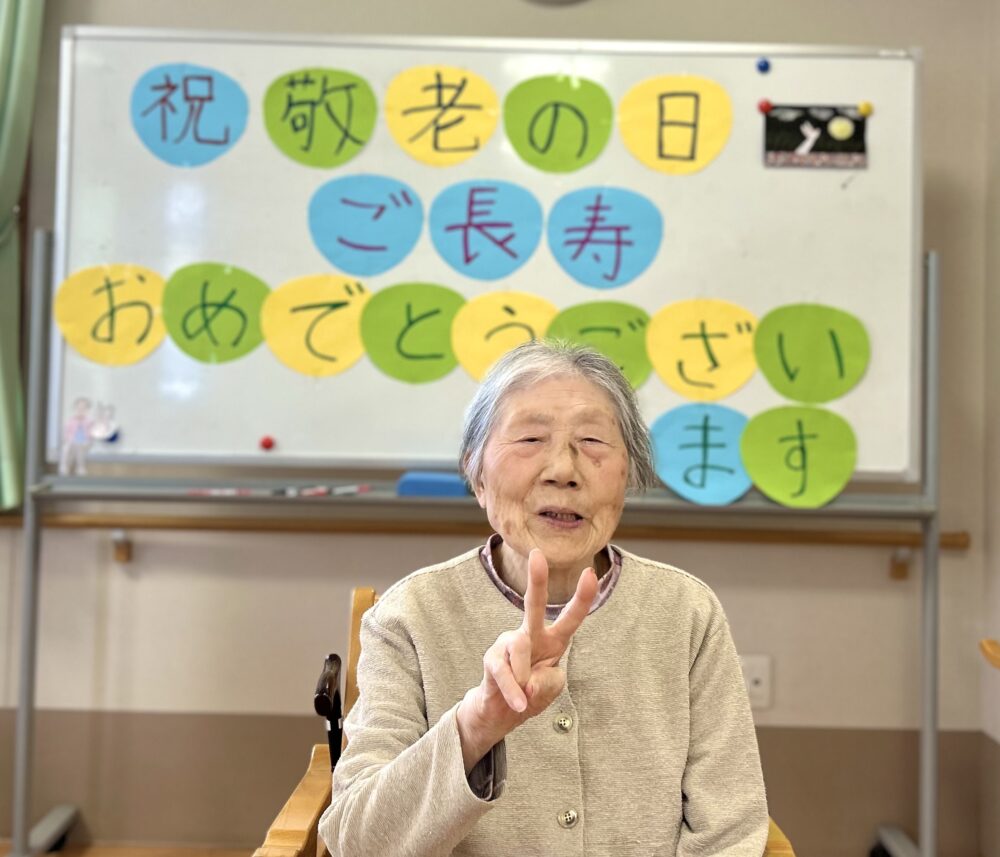 祝敬老の日
ご長寿
おめでとうござい
ます